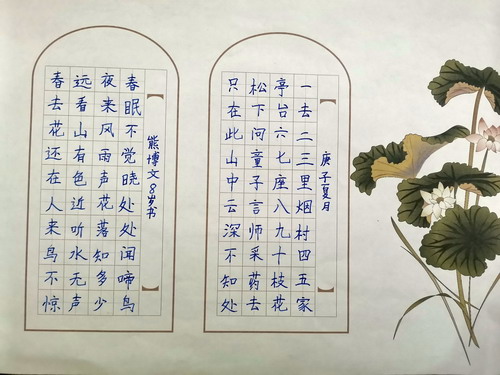 庚子夏月
一去二三里烟村四五家
亭台六七座八九十枝花
松下问童子言师采药去
只在此山中云深不知处
熊博文8岁书
春眠不觉晓处处闻啼鸟
夜来风雨声花落知多少
远看山有色近听水无声
春去花还在人来鸟不惊